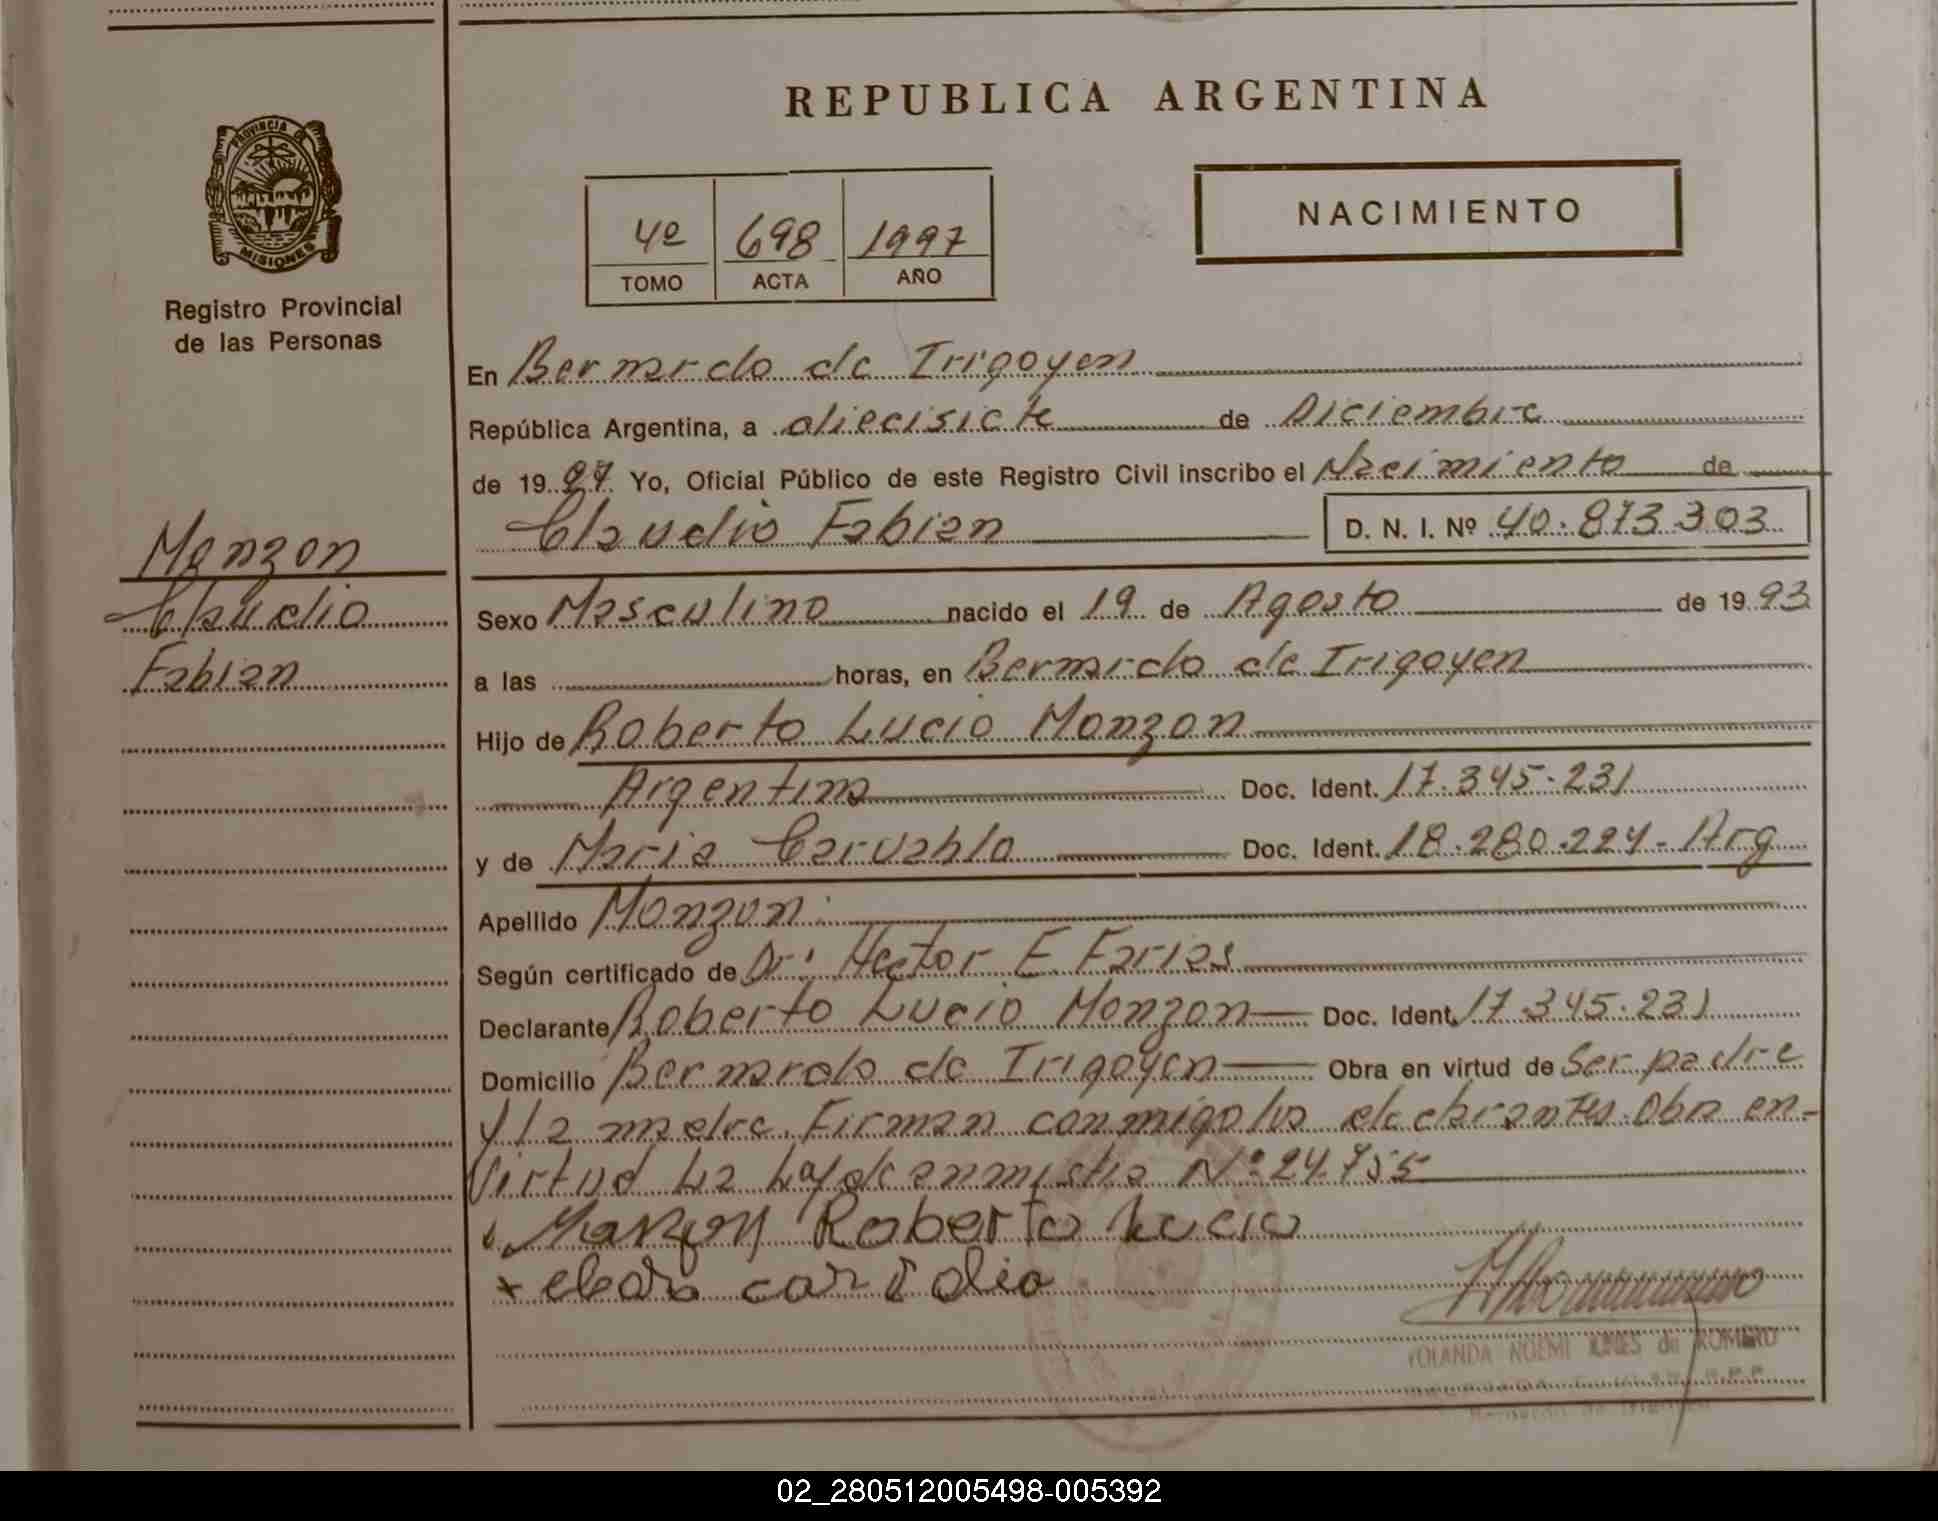 REPUBLICA ARGENTINA
PROVINCIA DE
MISIONES
Registro Provincial
de las Personas
4º 698 1997
TOMO ACTA AÑO
NACIMIENTO
En Bernardo de Irigoyen
República Argentina, a diecisiete de Diciembre
de 19 97 Yo, Oficial Público de este Registro Civil inscribo el Nacimiento de
Claudio Fabian D. N. I. Nº 40.873.303
Monzon
Claudio
Fabian
Sexo Masculino nacido el 19 de Agosto de 19 93
a las horas, en Bernardo de Irigoyen
Hijo de Roberto Lucio Monzon
Argentina Doc. Ident. 17.345.231
y de Maria Carvahlo Doc. Ident. 18.280.224 - Arg
Apellido Monzon
Según certificado de Dr: Hector E. Farias
Declarante Roberto Lucio Monzon Doc. Ident. 17.345.231
Domicilio Bernardo de Irigoyen Obra en virtud de Ser padre
y la madre. Firman conmigo los declarantes. Obra en
virtud La Ley de anmistia Nº 24.755
Monzon Roberto Lucio
YOLANDA NOEMI de ROMERO
Bernardo de Irigoyen
02_280512005498-005392